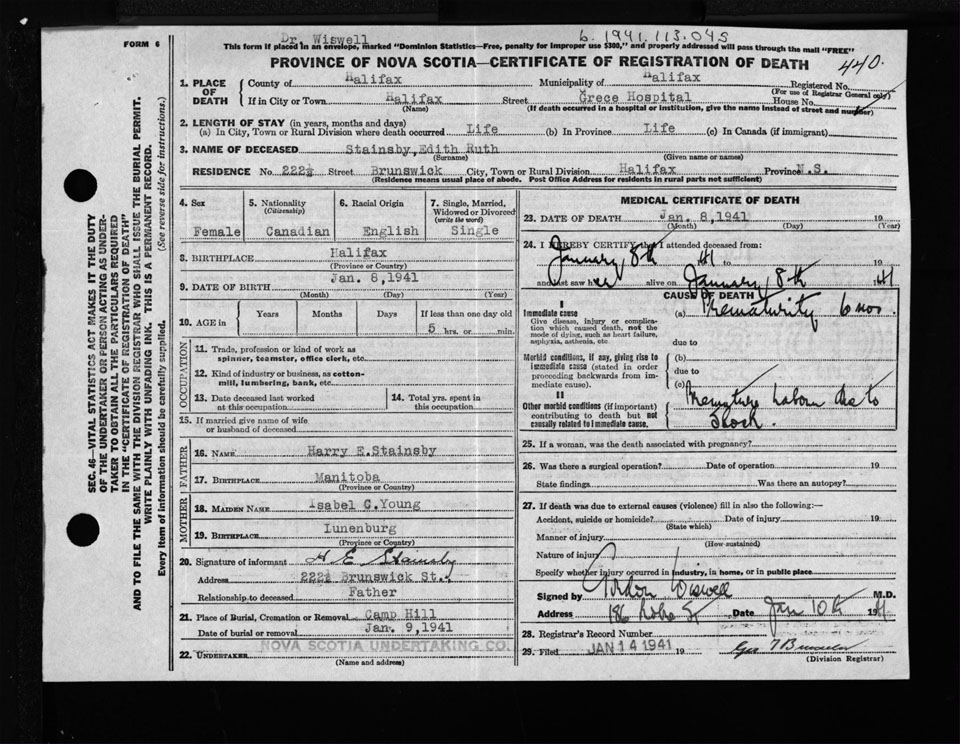 Dr. Wiswell
6.1941.113.045
FORM 6
This form if placed in an envelope, marked "Dominion Statistics—Free, penalty for improper use $300," and properly addressed will pass through the mail "FREE"
PROVINCE OF NOVA SCOTIA—CERTIFICATE OF REGISTRATION OF DEATH
440.
1. PLACE OF DEATH
County of Halifax Municipality of Halifax Registered No.
(For use of Registrar General only)
If in City or Town Halifax Street Grece Hospital House No.
(Name) (If death occurred in a hospital or institution, give the name instead of street and number)
2. LENGTH OF STAY (in years, months and days)
(a) In City, Town or Rural Division where death occurred Life (b) In Province Life (c) In Canada (if immigrant)
3. NAME OF DECEASED Stainsby, Edith Ruth
(Surname) (Given name or names)
RESIDENCE No. 222½ Street Brunswick City, Town or Rural Division Halifax Province N.S.
(Residence means usual place of abode. Post Office Address for residents in rural parts not sufficient)
4. Sex
Female
5. Nationality
(Citizenship)
Canadian
6. Racial Origin
English
7. Single, Married, Widowed or Divorced
(write the word)
Single
8. BIRTHPLACE Halifax
(Province or Country)
9. DATE OF BIRTH Jan. 8,1941
(Month) (Day) (Year)
10. AGE in
Years Months Days If less than one day old
5 hrs. or min.
OCCUPATION
11. Trade, profession or kind of work as
spinner, teamster, office clerk, etc.
12. Kind of industry or business, as cotton-
mill, lumbering, bank, etc.
13. Date deceased last worked
at this occupation
14. Total yrs. spent in
this occupation
15. If married give name of wife
or husband of deceased
FATHER
16. NAME Harry E.Stainsby
17. BIRTHPLACE Manitoba
(Province or Country)
MOTHER
18. MAIDEN NAME Isabel C.Young
19. BIRTHPLACE Lunenburg
(Province or Country)
20. Signature of informant H E Stainsby
Address 222½ Brunswick St.
Relationship to deceased Father
21. Place of Burial, Cremation or Removal Camp Hill
Date of burial or removal Jan. 9,1941
22. UNDERTAKER NOVA SCOTIA UNDERTAKING CO.
(Name and address)
MEDICAL CERTIFICATE OF DEATH
23. DATE OF DEATH Jan. 8,1941 19
(Month) (Day) (Year)
24. I HEREBY CERTIFY that I attended deceased from:
January 8th 41 to 19
and last saw her alive on January 8th 41
CAUSE OF DEATH
I
Immediate cause
Give disease, injury or complica-
tion which caused death, not the
mode of dying, such as heart failure,
asphyxia, asthenia, etc.
(a) Prematurity 6 mos.
due to
Morbid conditions, if any, giving rise to
immediate cause (stated in order
proceeding backwards from im-
mediate cause).
(b)
due to
(c)
II
Other morbid conditions (if important)
contributing to death but not
causally related to immediate cause.
Premature Labour due to
Shock.
25. If a woman, was the death associated with pregnancy?
26. Was there a surgical operation? Date of operation 19
State findings Was there an autopsy?
27. If death was due to external causes (violence) fill in also the following:—
Accident, suicide or homicide? Date of injury 19
(State which)
Manner of injury
(How sustained)
Nature of injury
Specify whether injury occurred in industry, in home, or in public place
Signed by Gordon Wiswell M.D.
Address 186 St Date Jan 10th 1941
28. Registrar's Record Number
29. Filed JAN 14 1941 19
(Division Registrar)
SEC. 46—VITAL STATISTICS ACT MAKES IT THE DUTY
OF THE UNDERTAKER OR PERSON ACTING AS UNDER-
TAKER TO OBTAIN ALL THE PARTICULARS REQUIRED
IN THE "CERTIFICATE OF REGISTRATION OF DEATH"
AND TO FILE THE SAME WITH THE DIVISION REGISTRAR WHO SHALL ISSUE THE BURIAL PERMIT.
WRITE PLAINLY WITH UNFADING INK. THIS IS A PERMANENT RECORD.
Every item of information should be carefully supplied. (See reverse side for instructions.)